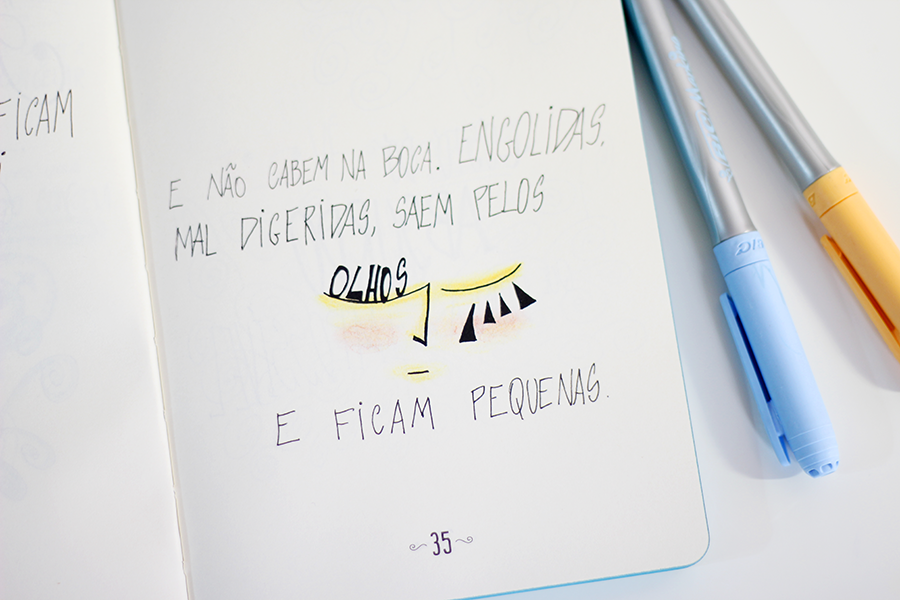 FICAM
E NÃO CABEM NA BOCA. ENGOLIDAS,
MAL DIGERIDAS, SAEM PELOS
OLHOS
E FICAM PEQUENAS.
35
BIC